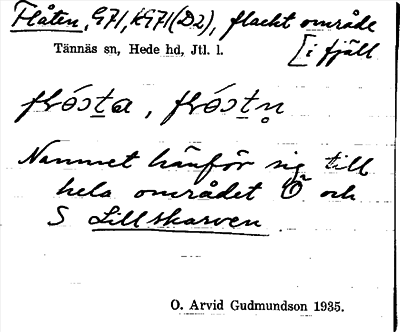 Flåten, G71, KG71(D2), flackt område
[i fjäll
Tännäs sn, Hede hd, Jtl. l.
Namnet hänför sig till
hela området Ö och
S Lillskarven
O. Arvid Gudmundson 1935.